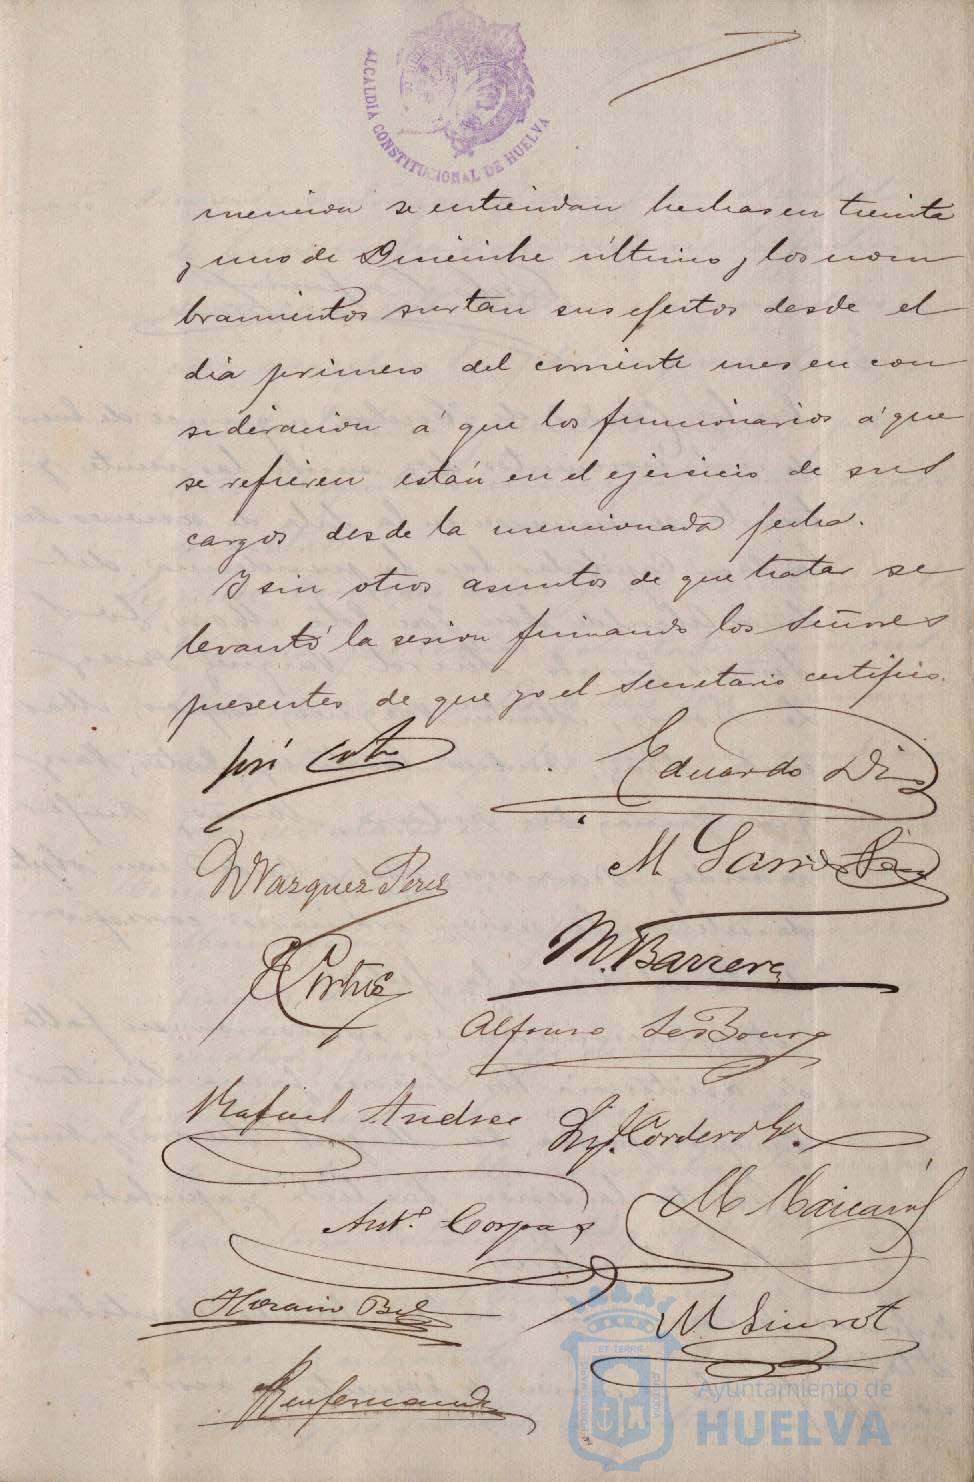 ALCALDIA CONSTITUCIONAL DE HUELVA
mencion se entiendan hechas en treinta
y uno de Diciembre último y los nom
bramientos surtan sus efectos desde el
dia primero del corriente mes en con
sideracion á que los funcionarios á que
se refieren están en el ejercicio de sus
cargos desde la mencionada fecha.
Y sin otros asuntos de que tratar se
levantó la sesion firmando los Señores
presentes de que yo el Secretario certifico.
José
Eduardo Diaz
Vazquez Perez
M
Cortés
M. Barrera
Alfonso
Rafael Andree
Cordero
Antº. Corpas
M
Horacio Bel
M Siurot
Ayuntamiento de
HUELVA